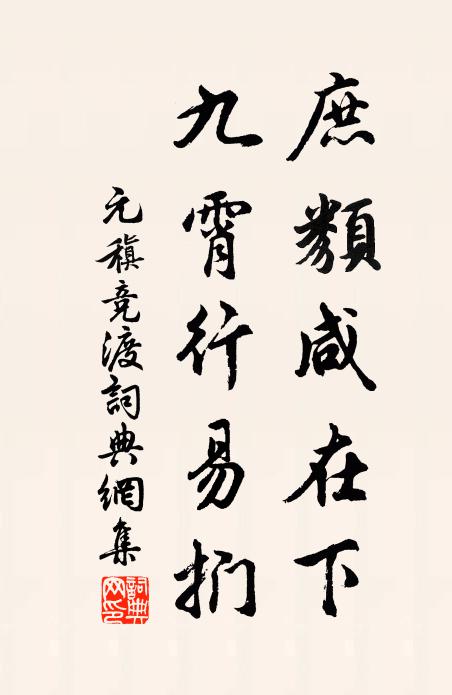 庶類咸在下
九霄行易捫
元稹竞渡詞典網集
詞典網印